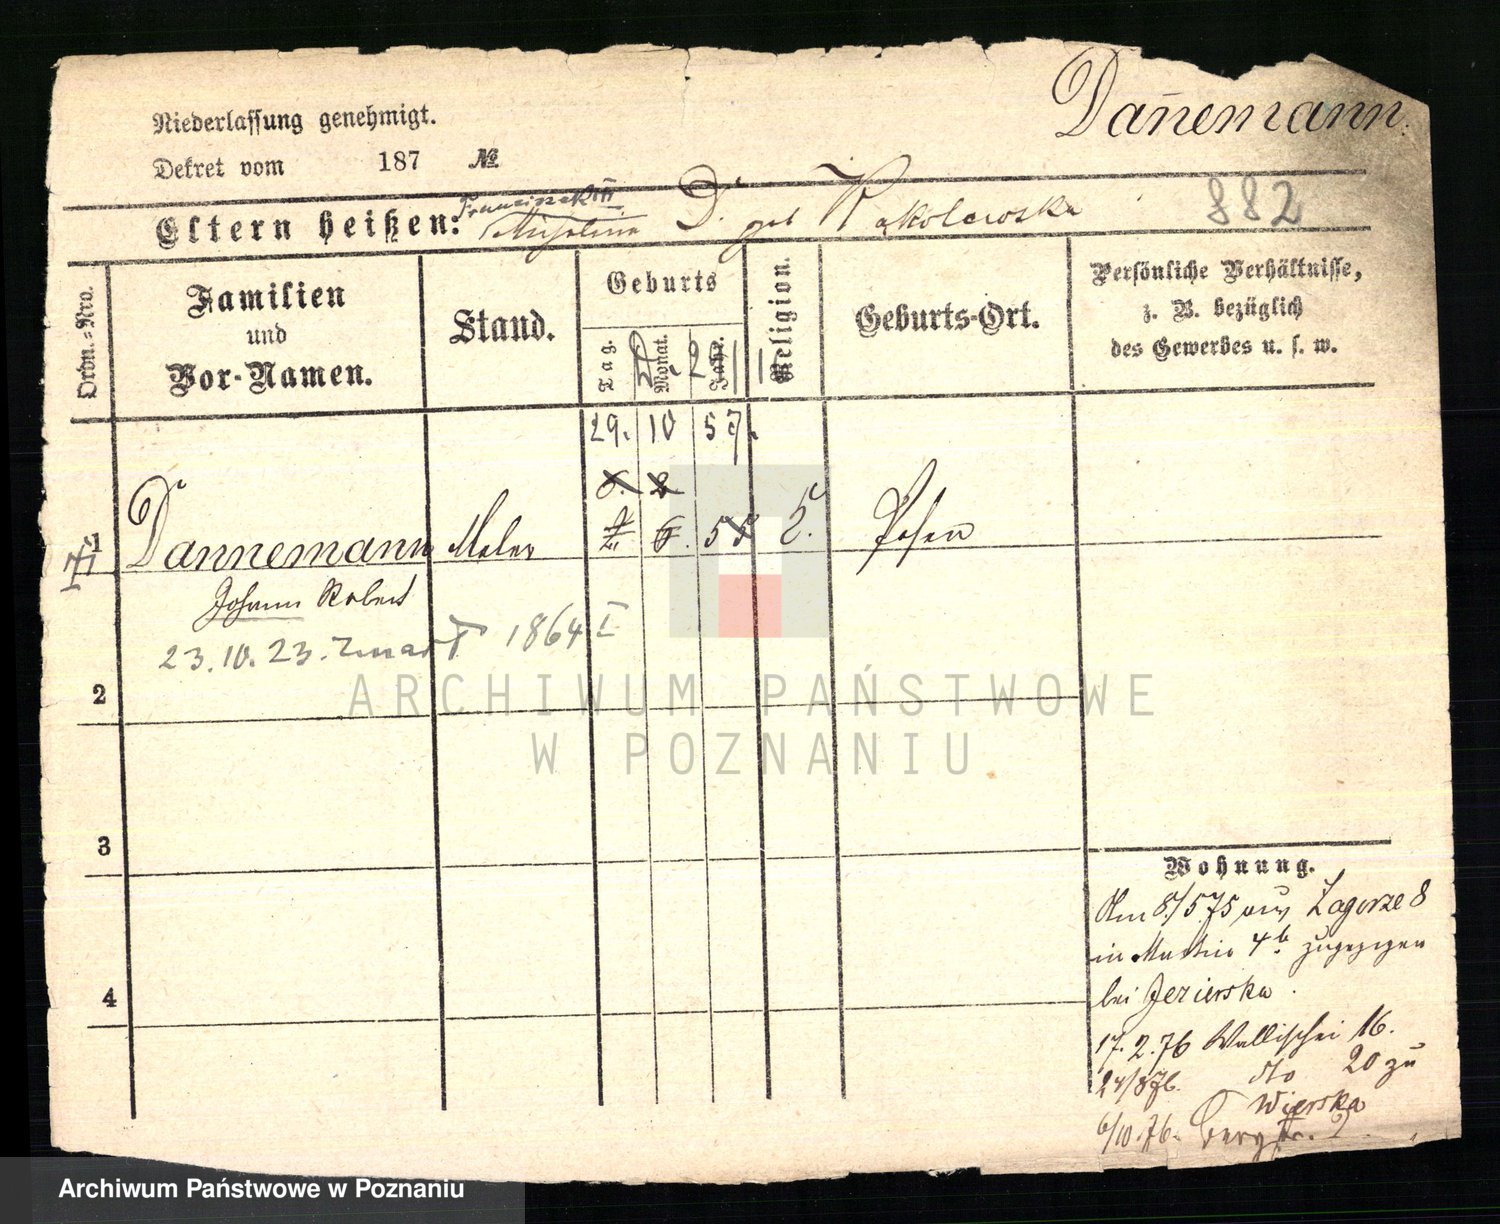 Dan̄emann.
Niederlassung genehmigt.
Dekret vom 187 №
882
Eltern heißen: Franciszek D. geb Rakolewska
Ordn.-Nro.
Familien
und
Vor-Namen.
Stand.
Geburts
Tag.
Monat.
Jahr.
Religion.
Geburts-Ort.
Persönliche Verhältnisse,
z. B. bezüglich
des Gewerbes u. s. w.
29. 10 57.
6. 2.
1 Dannemann Maler 55 Posen
Johann Robert
23.10.23. zmarł 1864 I
2
3
4
Wohnung.
Am 8/5 75 aus Zagorze 8
in 4b zugezogen
bei Jezierska.
17.2.76 Wallischei 16.
24/8 76. dto 20 zu
Wierska
6/10.76. Bergstr. 2.
ARCHIWUM PAŃSTWOWE
W POZNANIU
Archiwum Państwowe w Poznaniu